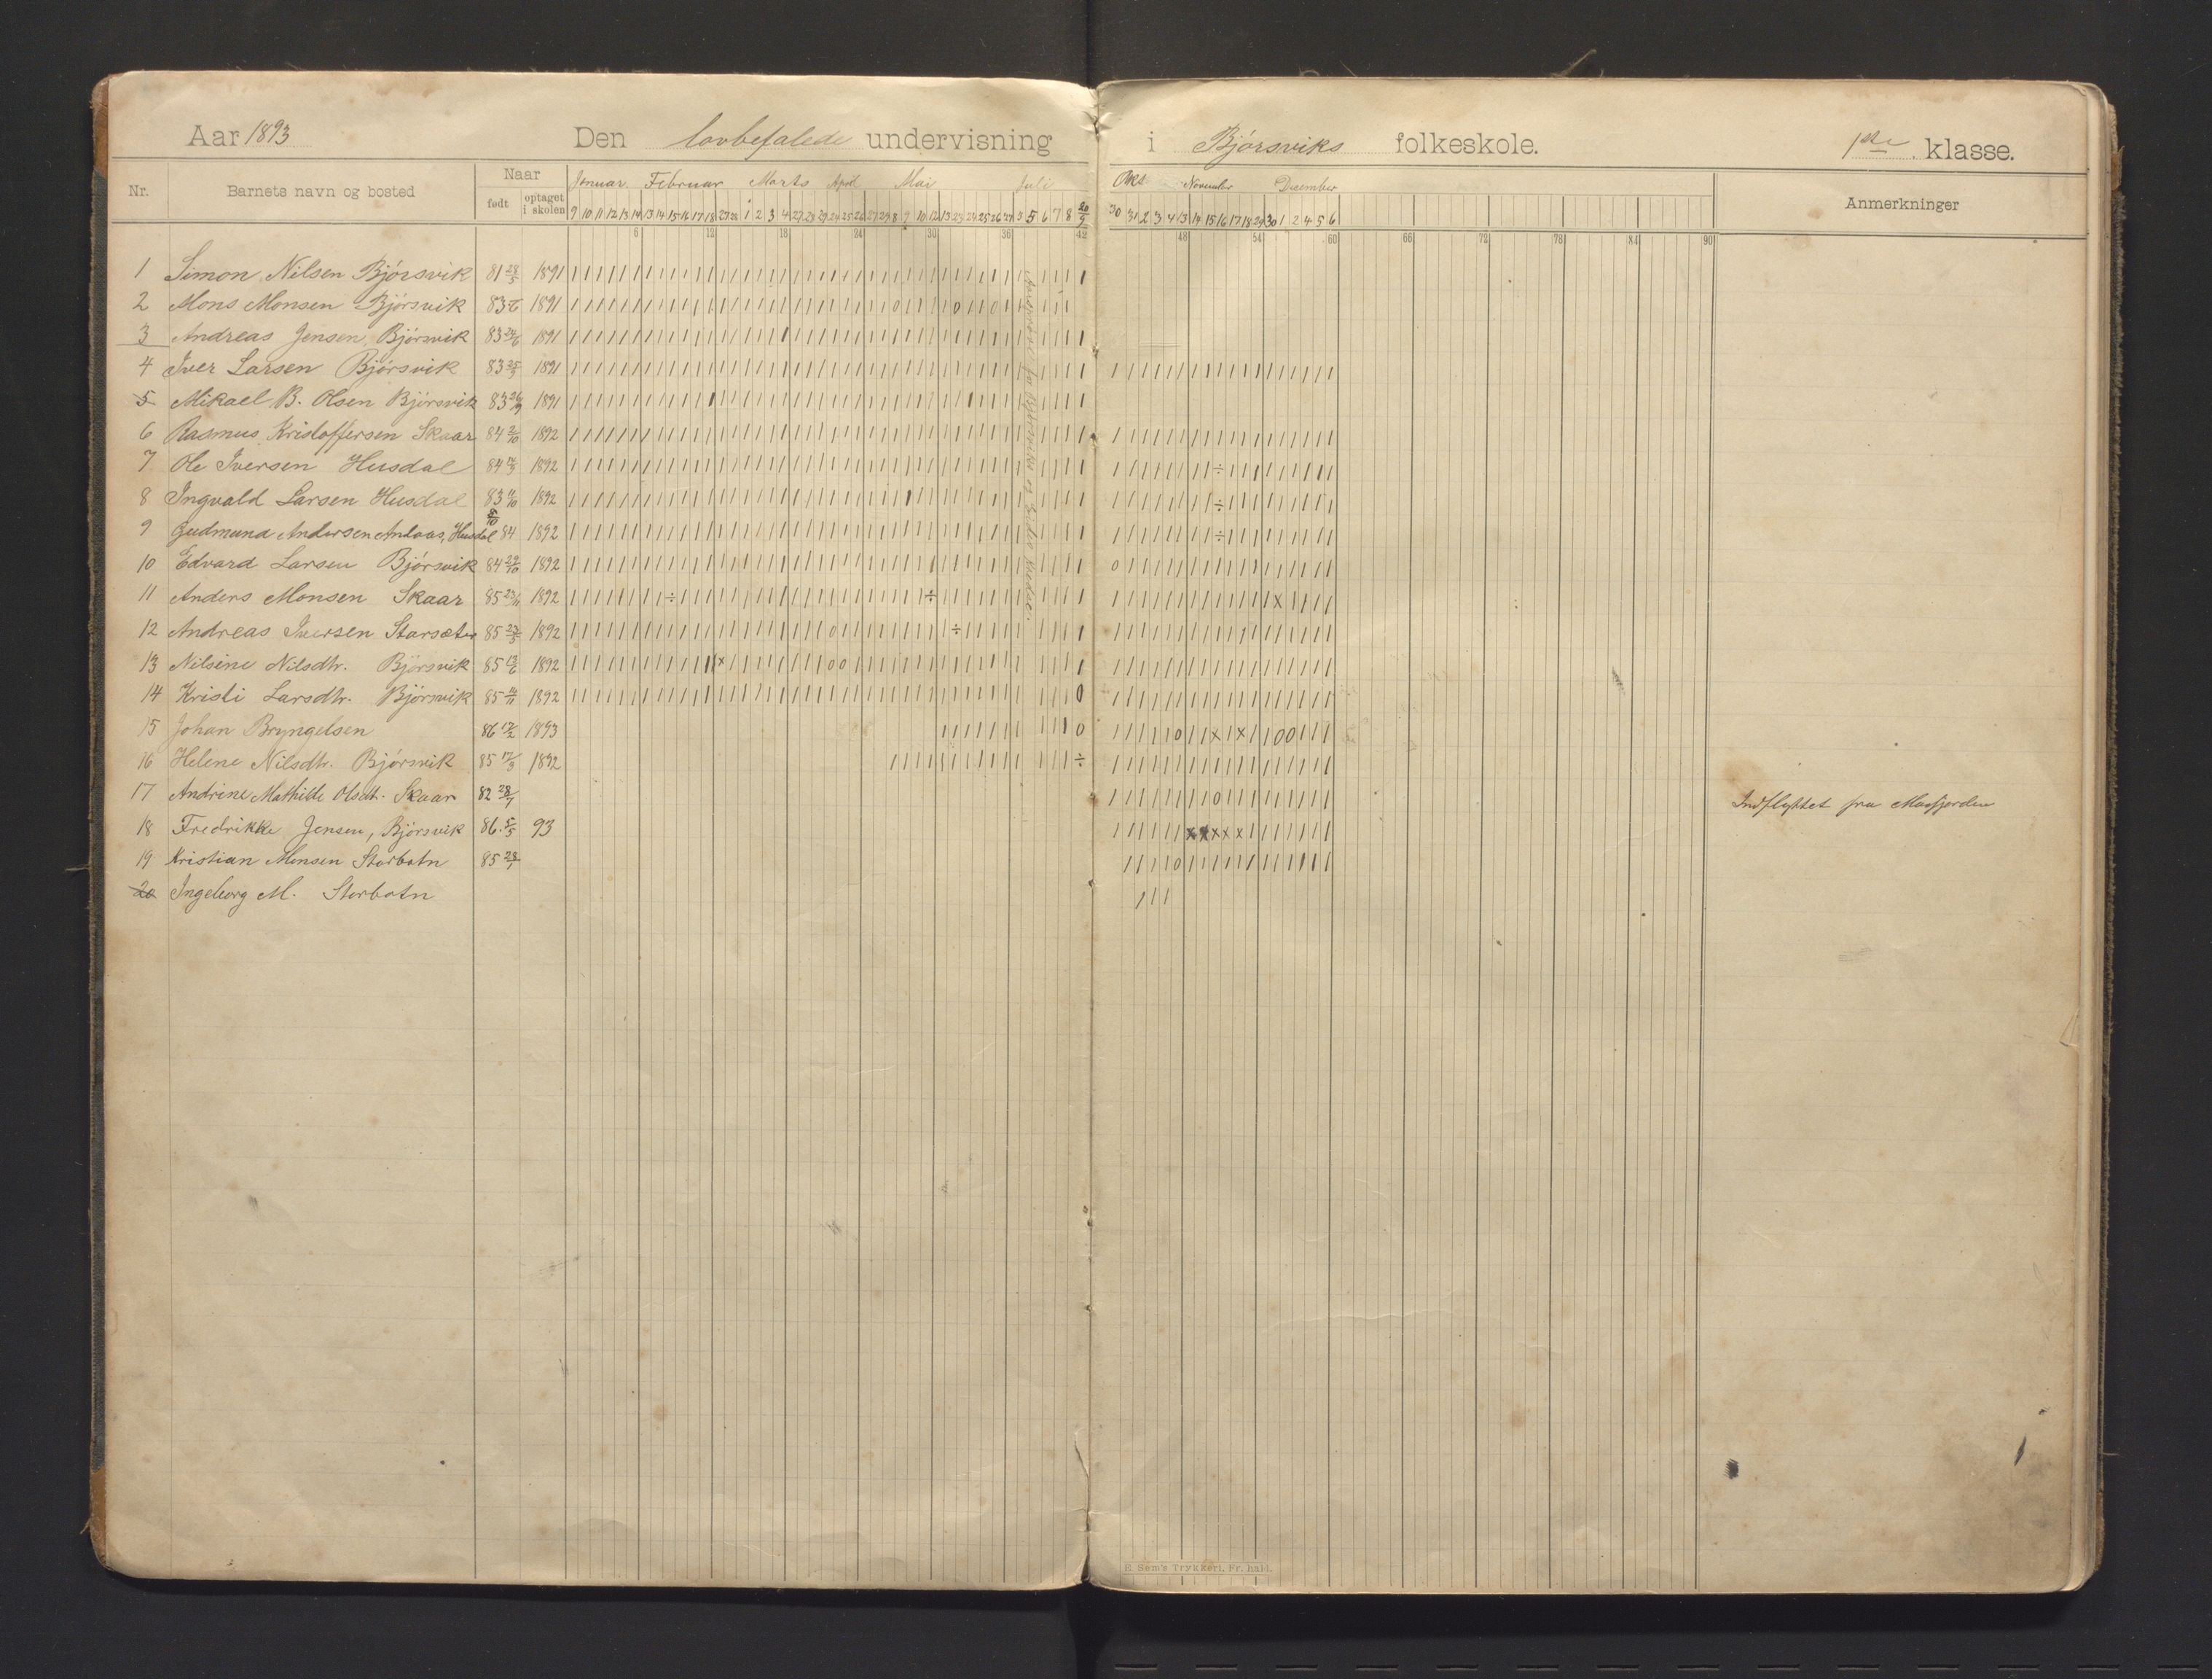 Aar 1893 Den lovbefalede undervisning i Bjørsviks folkeskole. 1ste klasse.
Nr. Barnets navn og bosted Naar født optaget i skolen Januar Februar Marts April Mai Juli Okt November Desember Anmerkninger
9 10 11 12 13 14 13 14 15 16 17 18 27 28 1 2 3 4 27 28 29 24 25 26 27 29 8 9 10 12 13 23 24 25 26 27 3 5 6 7 8 30 31 2 3 4 13 14 15 16 17 18 29 30 1 2 4 5 6
6 12 18 24 30 36 42 48 54 60 66 72 78 84 90
1 Simon Nilsen Bjørsvik 81 28/5 1891
2 Mons Monsen Bjørsvik 83 1891
3 Andreas Jensen, Bjørsvik 83 24/6 1891
4 Iver Larsen Bjørsvik 83 1891
5 Mikael B. Olsen Bjørsvik 83 26/9 1891
6 Rasmus Kristoffersen Skaar 84 2/10 1892
7 Ole Iversen Husdal 84 1892
8 Ingvald Larsen Husdal 83 1892
9 Gudmund Andersen Anlaas, Husdal 84 1892
10 Edvard Larsen Bjørsvik 84 29/10 1892
11 Anders Monsen Skaar 85 23/11 1892
12 Andreas Iversen Storsæter 85 23/5 1892
13 Nilsine Nilsdtr. Bjørsvik 85 1892
14 Kristi Larsdtr. Bjørsvik 85 1892
15 Johan Bryngelsen 86 17/2 1893
16 Helene Nilsdtr. Bjørsvik 85 17/3 1892
17 Andrine Mathilde Olsdt. Skaar 82 28/7 Indflyttet fra Masfjorden
18 Fredrikke Jensen, Bjørsvik 86. 5/5 93
19 Kristian Monsen Storbotn 85
20 Ingeborg M. Storbotn
E. Sem's Trykkeri, Fr.hald.